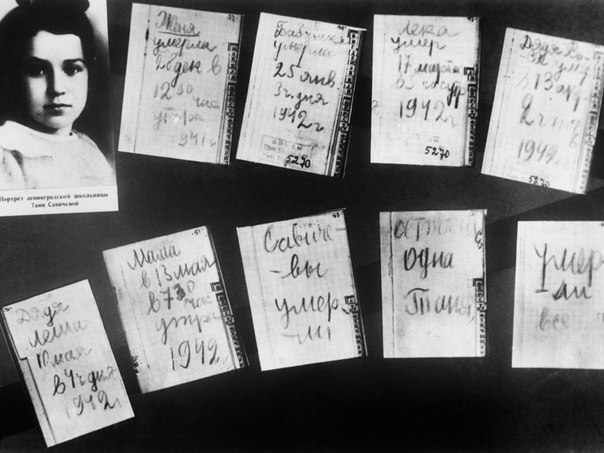 Портрет ленинградской школьницы
Тани Савичевой
Женя
умерла
28 дек в
12.30 час
утра
1941 г
Бабушка
умерла
25 янв.
3 ч. дня
1942 г
5270
Лека
умер
17 марта
в 5 час утр
1942 г
5270
Дядя Ва
умер
в 13 апр
2 ч ночь
1942
Дядя
Леша
10 мая
в 4 ч дня
1942 г
Мама
в 13 мая
в 7.30
час
утра
1942 г
Савиче
-вы
умер
-ли
осталась
одна
Таня
умер
-ли
все